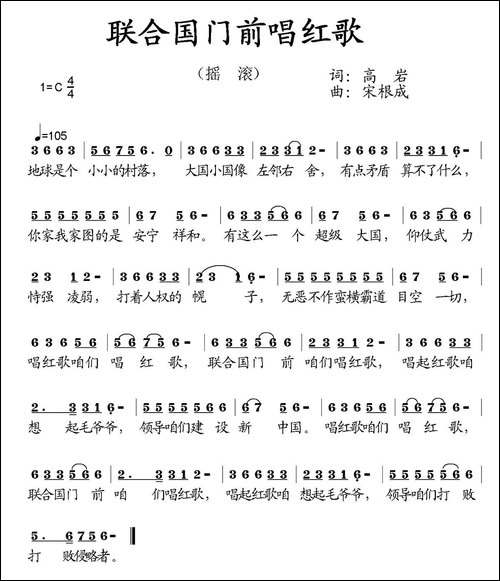 联合国门前唱红歌
（摇 滚）
词：高 岩
曲：宋根成
1=C 4/4
♩=105
3 6 6 3 | 5 6 7 5 6 . 0 | 3 6 6 3 3 | 2 3 3 1 2 - | 3 6 6 3 3 | 2 3 3 1 6 - |
地球是个 小小的村落， 大国小国像 左邻右 舍， 有点矛盾 算不了什么，
5 5 5 5 5 5 5 | 6 7 5 6 - | 6 3 3 5 6 6 | 5 5 1 2 - | 6 3 3 5 6 6 |
你家我家图的是 安宁 祥和。 有这么一 个 超级 大国， 仰仗武 力
2 3 1 2 - | 3 6 6 3 3 | 2 3 1 6 - | 5 5 5 5 5 5 5 5 | 6 7 5 6 - |
恃强 凌弱， 打着人权的 幌 子， 无恶不作蛮横霸道 目空 一切，
6 3 6 5 6 | 5 6 7 5 6 - | 6 3 3 5 6 6 | 2 3 3 1 2 - | 3 6 6 3 3 |
唱红歌咱们 唱 红 歌， 联合国门 前 咱们唱红歌， 唱起红歌咱
2 . 3 3 3 1 6 - | 5 5 5 5 5 6 6 | 5 6 7 5 6 - | 6 3 6 5 6 | 5 6 7 5 6 - |
想 起毛爷爷， 领导咱们建 设 新 中国。 唱红歌咱们 唱 红 歌，
6 3 3 5 6 6 | 2 . 3 3 3 1 2 - | 3 6 6 3 3 | 2 3 3 1 6 - | 5 5 5 5 6 6 |
联合国门 前 咱 们唱红歌， 唱起红歌咱 想起毛爷爷， 领导咱们打 败
5 . 6 7 5 6 - ‖
打 败侵略者。